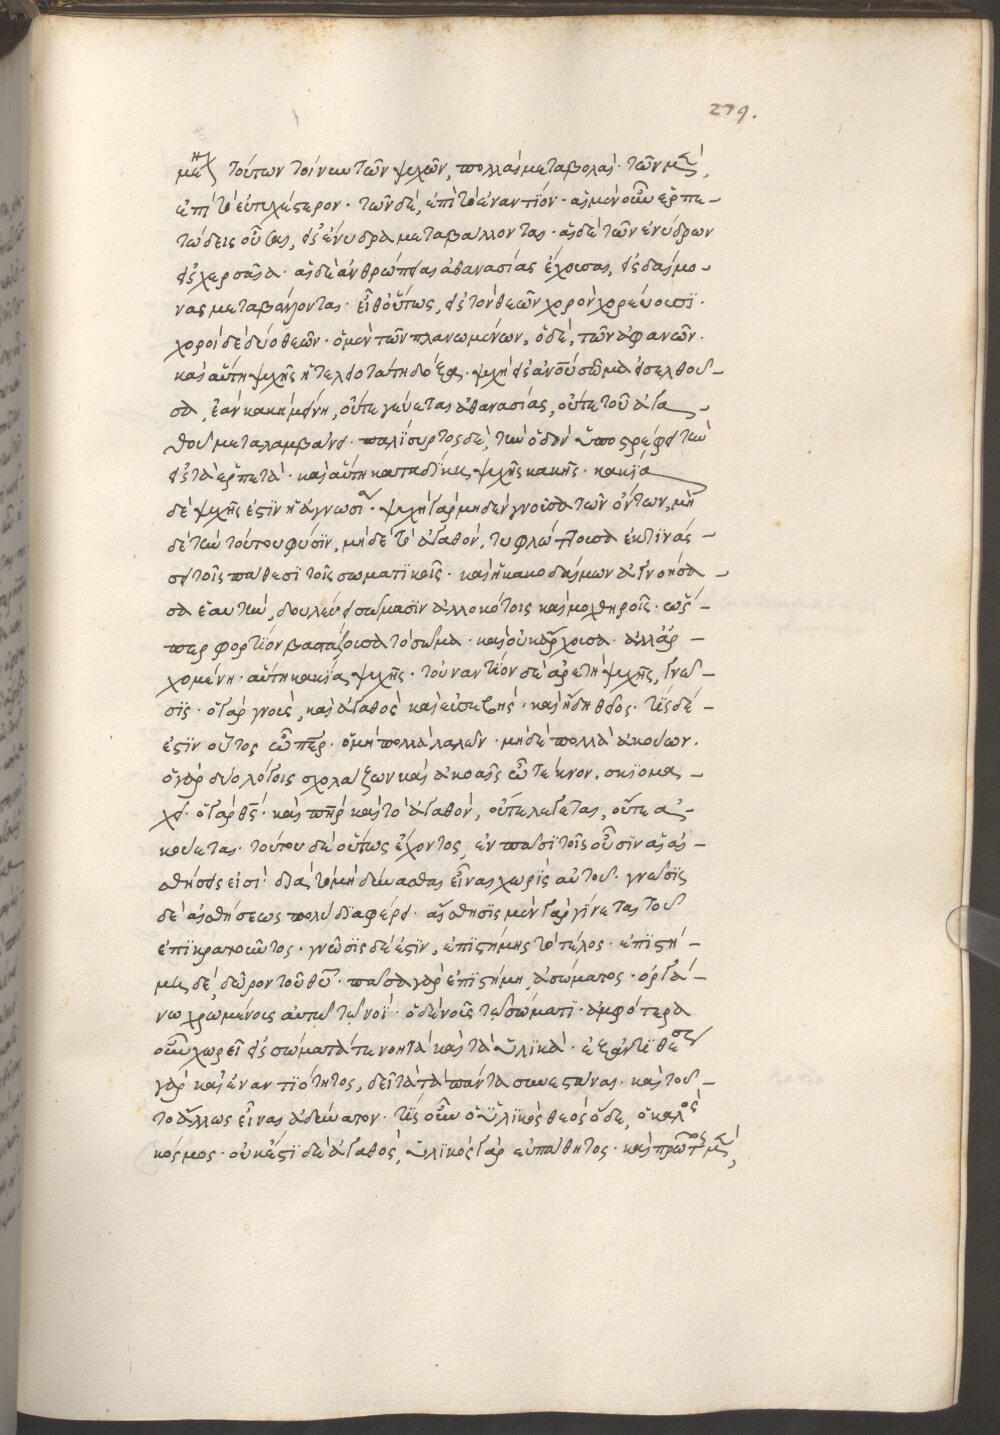 279.
μέναι τούτων τοίνυν τῶν ψυχῶν, πολλαὶ μεταβολαί· τῶν μὲν,
ἐπὶ τὸ εὐτυχέστερον· τῶν δὲ, ἐπὶ τὸ ἐναντίον· αἱ μὲν οὖν ἑρπε-
τώδεις οὖσαι, εἰς ἔνυδρα μεταβάλλονται· αἱ δὲ τῶν ἐνύδρων
εἰς χερσαῖα· αἱ δὲ ἀνθρώπειαι ἀθανασίας ἔχουσαι, εἰς δαίμο-
νας μεταβάλλονται· εἶθ' οὕτως, εἰς τὸν θεῶν χορὸν χορεύουσι·
χοροὶ δὲ δύο θεῶν· ὁ μὲν τῶν πλανωμένων, ὁ δὲ, τῶν ἀφανῶν.
καὶ αὕτη ψυχῆς ἡ τελειοτάτη δόξα· ψυχὴ εἰς ἀνου σῶμα εἰσελθοῦ-
σα, ἐὰν κακὴ μείνῃ, οὔτε γεύεται ἀθανασίας, οὔτε τοῦ ἀγα-
θοῦ μεταλαμβάνει· παλίσυρτος δὲ, τὴν ὁδὸν ὑποστρέφει τὴν
εἰς τὰ ἑρπετά· καὶ αὕτη καταδίκη ψυχῆς κακῆς· κακία
δὲ ψυχῆς ἐστὶν ἡ ἀγνωσία· ψυχὴ γὰρ μηδὲν γνοῦσα τῶν ὄντων, μη
δὲ τὴν τούτου φύσιν, μηδὲ τὸ ἀγαθόν, τυφλώττουσα ἐκτινάσ-
σει τοῖς πάθεσι τοῖς σωματικοῖς· καὶ ἡ κακοδαίμων ἀγνοήσα-
σα ἑαυτὴν, δουλεύει σώμασιν ἀλλοκότοις καὶ μοχθηροῖς· ὥσ-
περ φορτίον βαστάζουσα τὸ σῶμα· καὶ οὐκ ἄρχουσα· ἀλλ' ἀρ-
χομένη· αὕτη κακία ψυχῆς· τοὐναντίον δὲ ἀρετὴ ψυχῆς, γνῶ-
σις· ὁ γὰρ γνοὺς, καὶ ἀγαθὸς καὶ εὐσεβής· καὶ ἤδη θεῖος· τίς δέ-
ἐστιν οὗτος ὦ περ· ὁ μὴ πολλὰ λαλῶν· μηδὲ πολλὰ ἀκούων.
ὁ γὰρ δυο λόγοις σχολάζων καὶ ἀκοαῖς ὦ τέκνον, σκιομα-
χεῖ· ὁ γὰρ θς· καὶ πηρ καὶ τὸ ἀγαθὸν, οὔτε λέγεται, οὔτε α-
κούεται· τούτου δὲ οὕτως ἔχοντος, ἐν πᾶσι τοῖς οὖσιν αἱ αἰσ-
θήσεις εἰσὶ· διὰ τὸ μὴ δύνασθαι εἶναι χωρὶς αὐτοῦ· γνῶσις
δὲ αἰσθήσεως πολὺ διαφέρει· αἴσθησις μὲν γὰρ γίνεται τοῦ
ἐπικρατοῦντος· γνῶσις δὲ ἐστὶν, ἐπιστήμης τὸ τέλος· ἐπιστή-
μη δὲ, δῶρον τοῦ θυ· πᾶσα γὰρ ἐπιστήμη, ἀσώματος· ὀργά-
νῳ χρωμένοις αὐτῷ τῷ νοΐ· ὁ δὲ νοῦς τῷ σώματι· ἀμφότερα
οὖν χωρεῖ εἰς σώματα τὰ τε νοητὰ καὶ τὰ ὑλικά· ἐξ ἀντιθέσεως
γὰρ καὶ ἐναντιότητος, δεῖ τὰ τὰ πάντα συνεστάναι· καὶ τοῦ-
το ἄλλως εἶναι ἀδύνατον· τίς οὖν ὁ ὑλικὸς θεὸς ὅδε, ὁ καλὸς
κόσμος· οὐκ ἔστι δὲ ἀγαθὸς, ὑλικὸς γὰρ εὐπάθητος· καὶ πρῶτος μὲν,